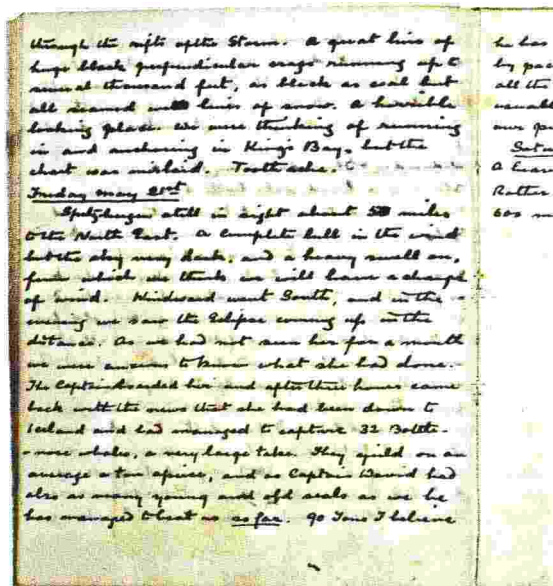 through the rifts of the Storm. A great line of
huge black perpendicular crags running up to
several thousand feet, as black as coal but
all seamed with lines of snow. A horrible
looking place. We were thinking of running
in and anchoring in King's Bay, but the
chart was mislaid. Toothache.
Friday May 21st
Spitzbergen still in sight about 50 miles
to the North East. A complete lull in the wind
but the sky very dark, and a heavy swell on,
from which we think we will have a change
of wind. Windward went South, and in the
evening we saw the Eclipse coming up in the
distance. As we had not seen her for a month
we were anxious to know what she had done.
The Captain boarded her and after three hours came
back with the news that she had been down to
Iceland and had managed to capture 32 Bottle-
-nose whales, a very large take. They yield on an
average a ton apiece, and as Captain David had
also as many young and old seals as we he
has managed to beat us so far. 90 Tons I believe
he has
by
all the
our
A
Rather
600